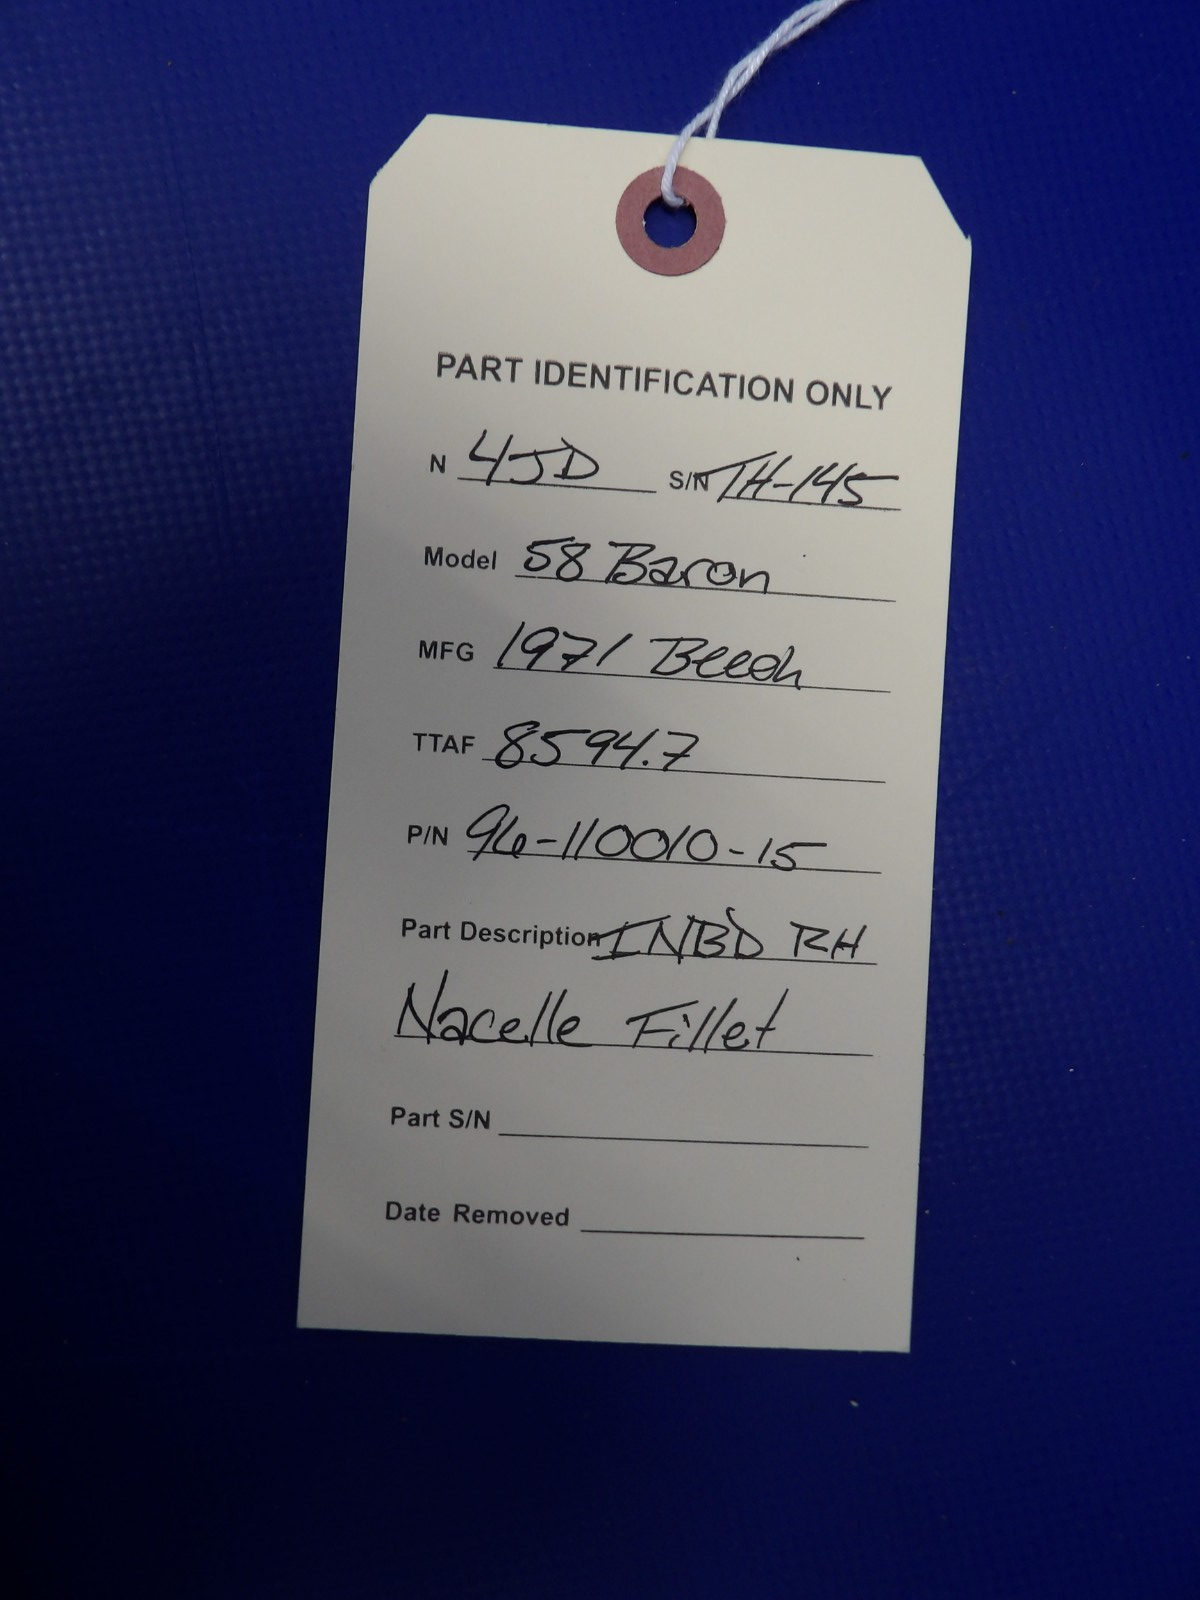 PART IDENTIFICATION ONLY
N 4JD S/N TH-145
Model 58 Baron
MFG 1971 Beech
TTAF 8594.7
P/N 96-110010-15
Part Description INB'D RH
Nacelle Fillet
Part S/N
Date Removed